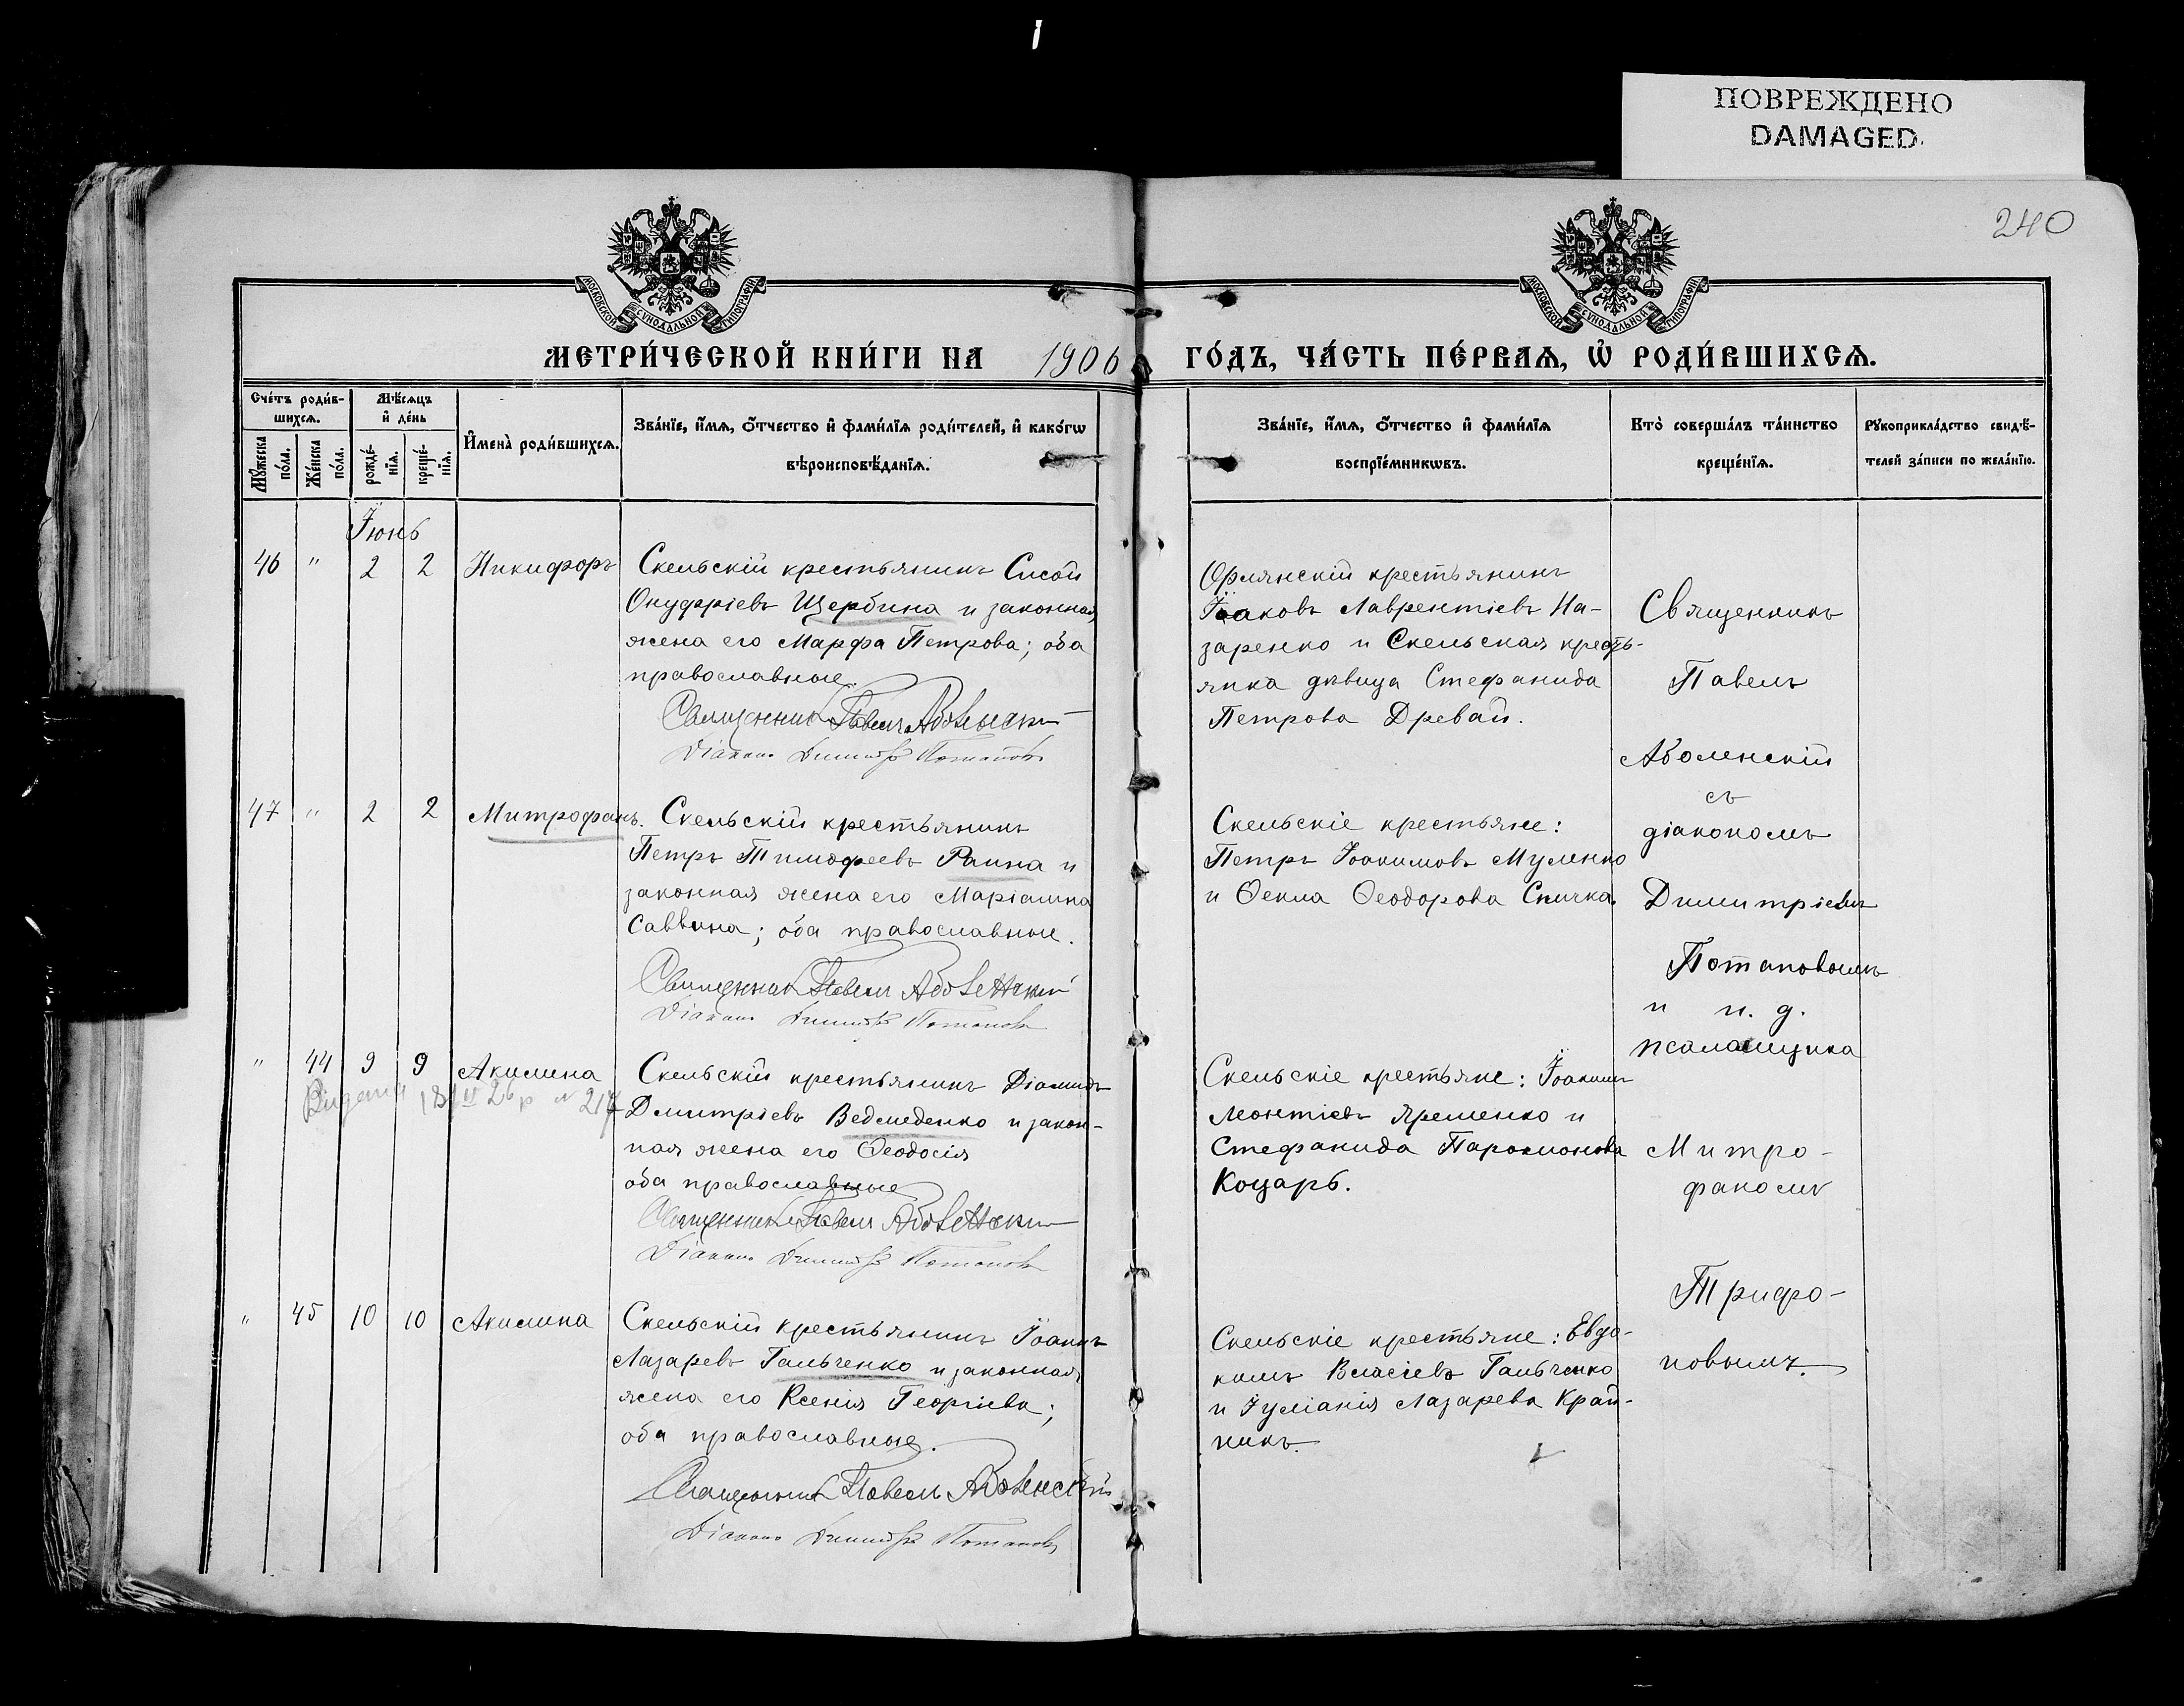 ПОВРЕЖДЕНО
DAMAGED.
240
МОСКОВСКОЙ СѴНОДАЛЬНОЙ ТИПОГРАФІИ
МОСКОВСКОЙ СѴНОДАЛЬНОЙ ТИПОГРАФІИ
МЕТРИ́ЧЕСКОЙ КНИ́ГИ НА 1906 ГО́ДЪ, ЧА́СТЬ ПЕ́РВАѦ, Ѽ РОДИ́ВШИХСѦ.
Сче́тъ роди́в-
шихсѧ.
Мꙋ́жеска
по́ла.
Же́нска
по́ла.
Мѣ́сѧцъ
и҆ де́нь
рожде́-
нїѧ.
креще́-
нїѧ.
И҆мена̀ роди́вшихсѧ.
Зва́нїе, и҆́мѧ, ѻ҆́тчество и҆ фами́лїѧ роди́телей, и҆ како́гѡ
вѣроисповѣ́данїѧ.
Зва́нїе, и҆́мѧ, ѻ҆́тчество и҆ фами́лїѧ
воспрїе́мникѡвъ.
Кто̀ соверша́лъ та́инство
креще́нїѧ.
Рꙋкоприкла́дство свидѣ́-
телей за́писи по жела́нїю.
Іюнь
46 " 2 2 Никифоръ
Скельскій крестьянинъ Сисой
Онуфріевъ Щербина и законная
жена его Марфа Петрова; оба
православные.
Священникъ Павелъ Аболенскій
Діаконъ Димитрій Потаповъ
Орлянскій крестьянинъ
Іаковъ Лаврентіевъ На-
заренко и Скельская кресть-
янка дѣвица Стефанида
Петрова Древай.
47 " 2 2 Митрофанъ.
Скельскій крестьянинъ
Петръ Тимофеевъ Рапна и
законная жена его Маріамна
Саввина; оба православные.
Священникъ Павелъ Аболенскій
Діаконъ Димитрій Потаповъ
Скельскіе крестьяне:
Петръ Іоакимовъ Муленко
и Ѳекла Ѳеодорова Спичка.
" 44 9 9 Акилина
217
Скельскій крестьянинъ Діомидъ
Дмитріевъ Ведмеденко и закон-
ная жена его Ѳеодосія
оба православные
Священникъ Павелъ Аболенскій
Діаконъ Димитрій Потаповъ
Скельскіе крестьяне: Іоакимъ
Леонтіевъ Яременко и
Стефанида Парѳмонова
Коцарь.
" 45 10 10 Акилина
Скельскій крестьянинъ Іоаннъ
Лазаревъ Гальченко и законная
жена его Ксенія Георгіева;
оба православные.
Священникъ Павелъ Аболенскій
Діаконъ Димитрій Потаповъ
Скельскіе крестьяне: Евдо-
кимъ Власіевъ Гальченко
и Іуліанія Лазарева Край-
никъ.
Священникъ
Павелъ
Аболенскій
съ
діакономъ
Димитріемъ
Потаповымъ
и и. д.
псаломщика
Митро-
фаномъ
Трифо-
новымъ.